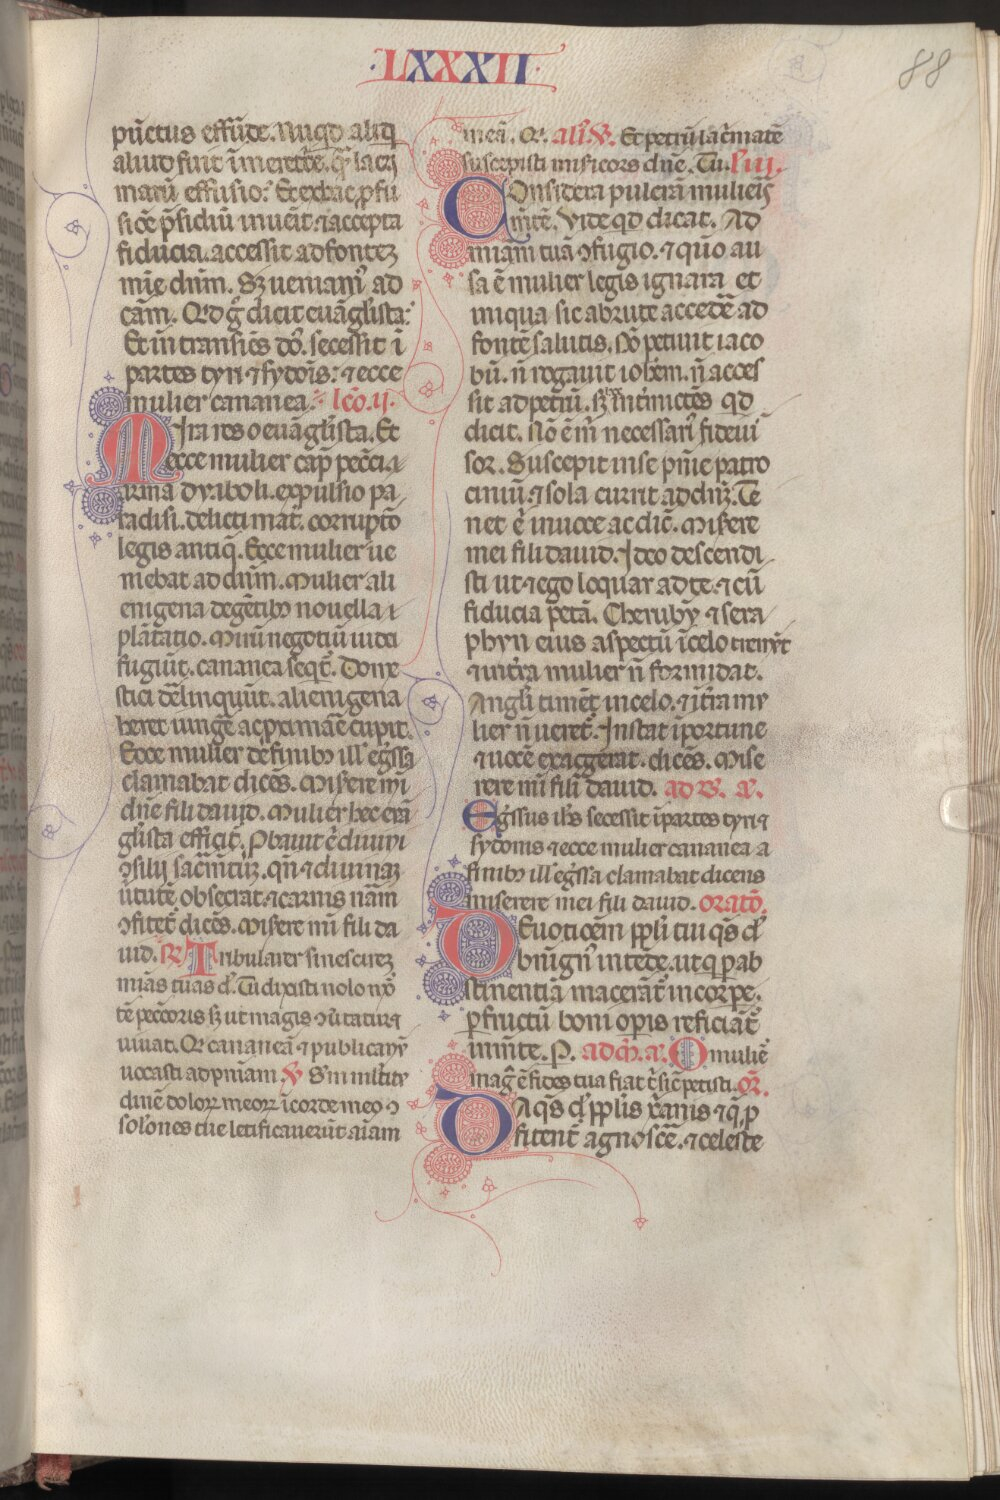 ·LXXXII·
88
pūctus effūde. Nūqd aliq
aliud fuit ī meretce. q̄ lacri
marū effusio: Et ex hac p̄fu
siōe p̄sidiū inueīt. ⁊ accepta
fiducia. accessit ad fontez
mīe dnm. Sꝫ ueniam᷒ ad
eām. Qd g̊ dicit euāglista:
Et in transiēs dō. secessit ī
partes tyri ⁊ sydoīs: ⁊ ecce
mulier cananea. lcō. ij.
Mira res o euāglista. Et
ecce mulier cap̄ pccī. ⁊
arma dyaboli. expulsio pa
radisi. delicti mat̄. corruptō
legis antiq̄. Ecce mulier ue
niebat ad dnm. Mulier ali
enigena de gētibꝫ nouella ⁊
plātatio. Mirū negotiū iudei
fugiūt. cananea seqt̄. Dome
stici delinquūt. alienigena
heret iungē ac pximāē cupit.
Ecce mulier de finibꝫ ill᷒ eg̊ssa
clamabat dicēs. Miserere mī
dne fili dauid. Mulier hec euā
glista efficit̄. Phauit ē diuini
ꝯsilij sacm̄tū. qn̄ ⁊ diuinaꝫ
ūtutē obsecrat. ⁊ carnis nām
ꝯfitet̄ dicēs. Miserere mī fili da
uid. ℞ Tribularer si nescirez
mīas tuas d᷒. Tu dixisti nolo mor
tē peccōris sꝫ ut magis ꝯūtatur ⁊
uiuat. Qr cananeā ⁊ publicanū
uocasti ad pniam ℣ Sm mltitu
dinē doloꝝ meoꝝ ī corde meo ꝯ
solōnes tue letificauerūt aīam
meā. Qr. ali᷒ ℣. Et petrū lac̄mātē
suscepisti misicors dne. Tu. l' iij.
Considera pulcrā mulieis
mītē. Vide qd dicat. Ad
miām tuā ꝯfugio. ⁊ quō au
sa ē mulier legis ignara et
iniqua sic abrute accedē ad
fontē salutis. Nō petiuit iaco
bū. n̄ rogauit iohem. n̄ acces
sit ad petrū. sꝫ qd
dicit. Nō ē m̄ necessari᷒ fideiuī
sor. Suscepit in se pnie patro
ciniū. ⁊ sola currit ad dnꝫ. Te
net ē in uoce ac dic̄. Miserere
mei fili dauid. Ideo descendi
sti ut ⁊ ego loquar ad te. ⁊ cū
fiducia petā. Cheruby ⁊ sera
phyn eius aspectū ī celo
⁊ ī t̄ra mulier n̄ formidat.
Angli timēt in celo. ⁊ ī t̄ra mu
lier n̄ ueret̄. Instat īportune
⁊ uocē exaggerat. dicēs. Mise
rere mī fili dauid. ad B. a.
Eg̊ssus ihs secessit ī partes tyri ⁊
sydonis ⁊ ecce mulier cananea a
finibꝫ ill᷒ eg̊ssa clamabat dicens
miserere mei fili dauid. oratō.
Deuotiōem ppl̄i tui qs d᷒
bnign᷒ intēde. ut q ꝑ ab
stinentiā macerāt̄ in corpe.
ꝑ fructū boni opis reficiāt̄
in mte. P. ad M. a. O muliē
mag̅ ē fides tua fiat t̄ sic̄ petisti. Or̄.
Da qs d᷒ ppl̄is x̄anis ⁊ q̄ p
fitent̄ agnoscē. ⁊ celeste